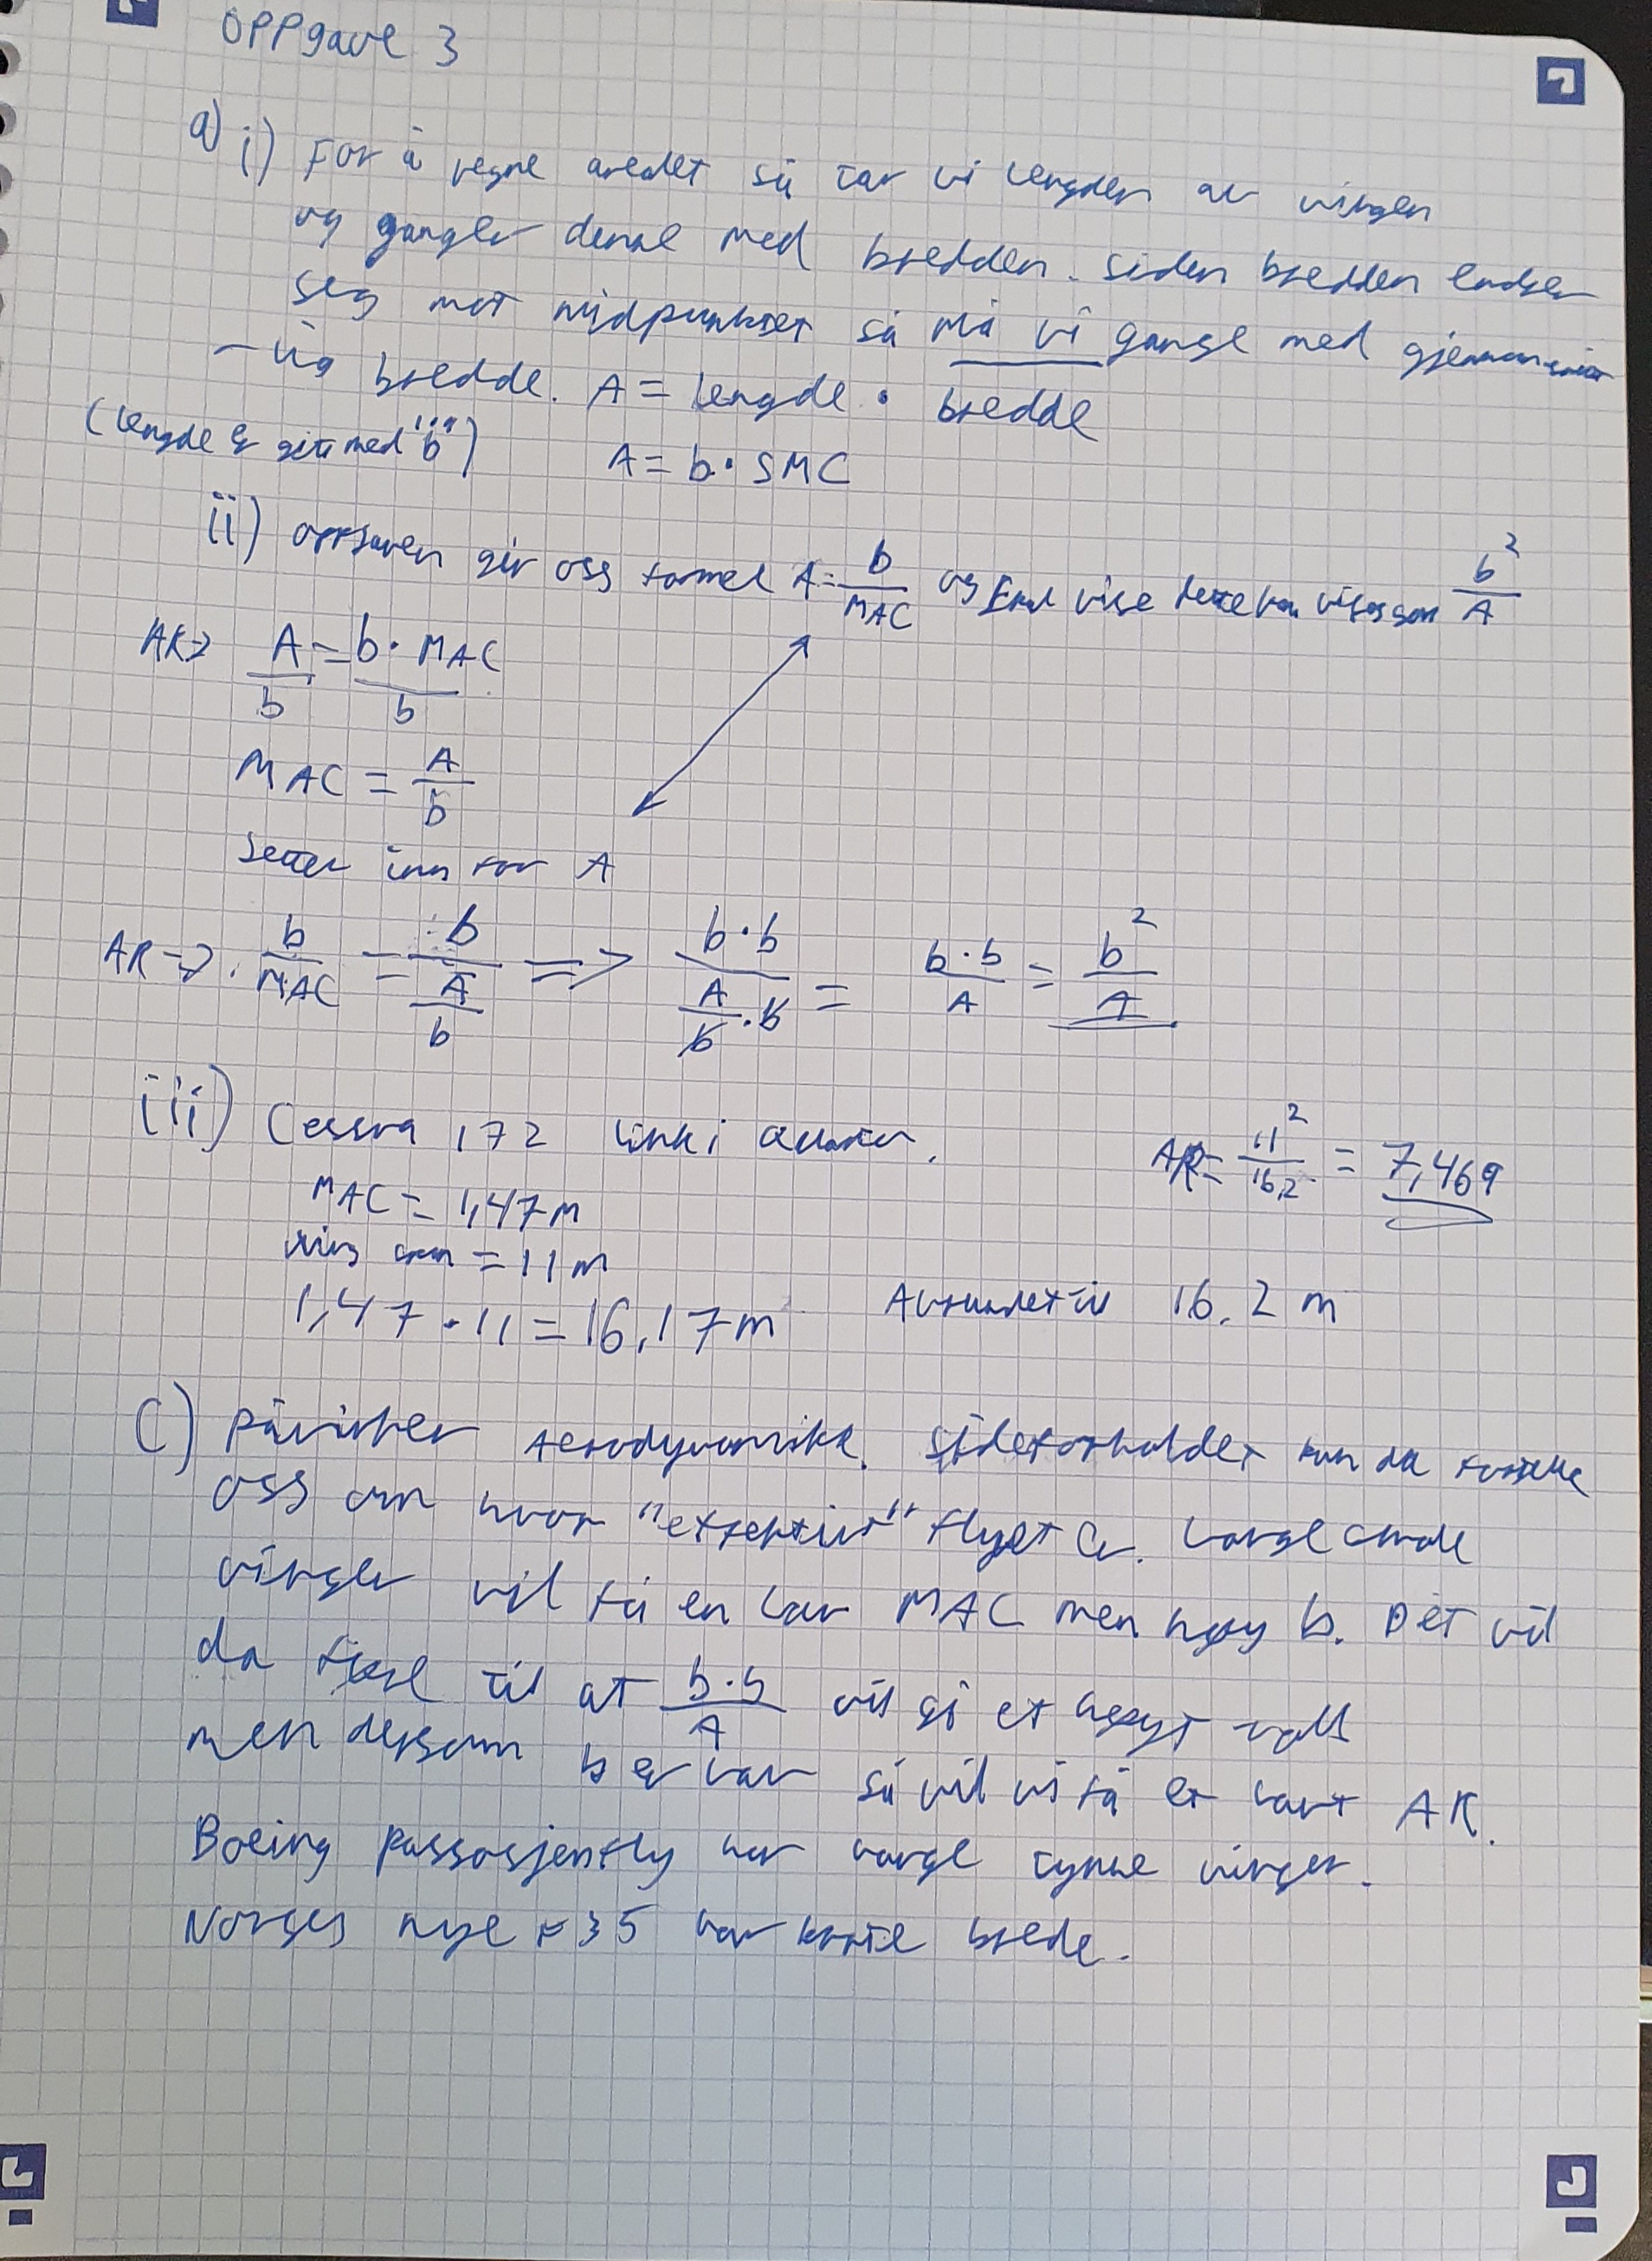 Oppgave 3
a) i) For å regne arealet så tar vi lengden av vingen
og ganger denne med bredden. Siden bredden endrer
seg mot midpunktet så må vi gange med gjennomsnitt
-lig bredde. A = lengde · bredde
(lengde er gitt med "b") A = b · SMC
ii) Oppgaven gir oss formel A = b/MAC og skal vise dette kan vises som b²/A
AR => A/b = b · MAC/b
MAC = A/b
Setter inn for A
AR => b/MAC = b/(A/b) => b·b/(A/b · b) = b·b/A = b²/A
iii) Cessna 172 link i
AR = 11²/16,2 = 7,469
MAC = 1,47 m
wing span = 11 m
1,47 · 11 = 16,17 m Avrundet til 16.2 m
C) Påvirker aerodynamikk. Sideforholdet kan da fortelle
oss om hvor "effektivt" flyet er. Lange smale
vinger vil få en lav MAC men høy b. Det vil
da føre til at b·b/A vil gi et høyt tall
men dersom b er lav så vil vi få et lavt AR.
Boeing passasjerfly har lange tynne vinger.
Norges nye F35 har korte brede.